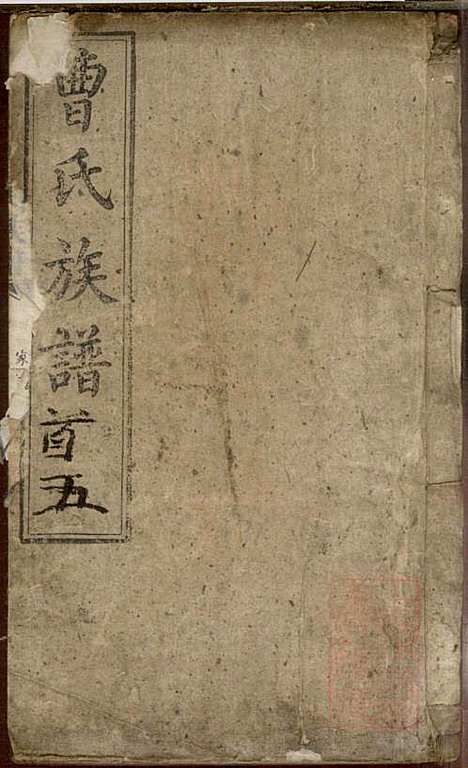 曹氏族譜首五
家